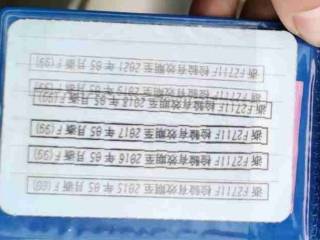 浙F2711F 检验有效期至 2015年05月浙F
浙F2711F 检验有效期至 2016年05月浙F
浙F2711F 检验有效期至 2017年05月浙F
浙F2711F 检验有效期至 2018年05月浙F
检验有效期至 2019年05月浙F
浙F2711F 检验有效期至 2021年05月浙F